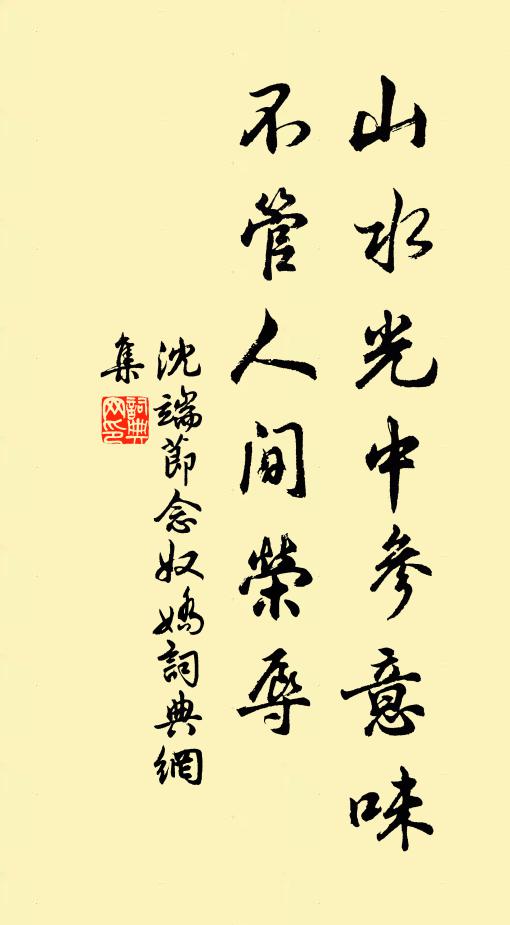 山水光中參意味
不管人間榮辱
沈端節念奴嬌詞典網
集
詞典
网印